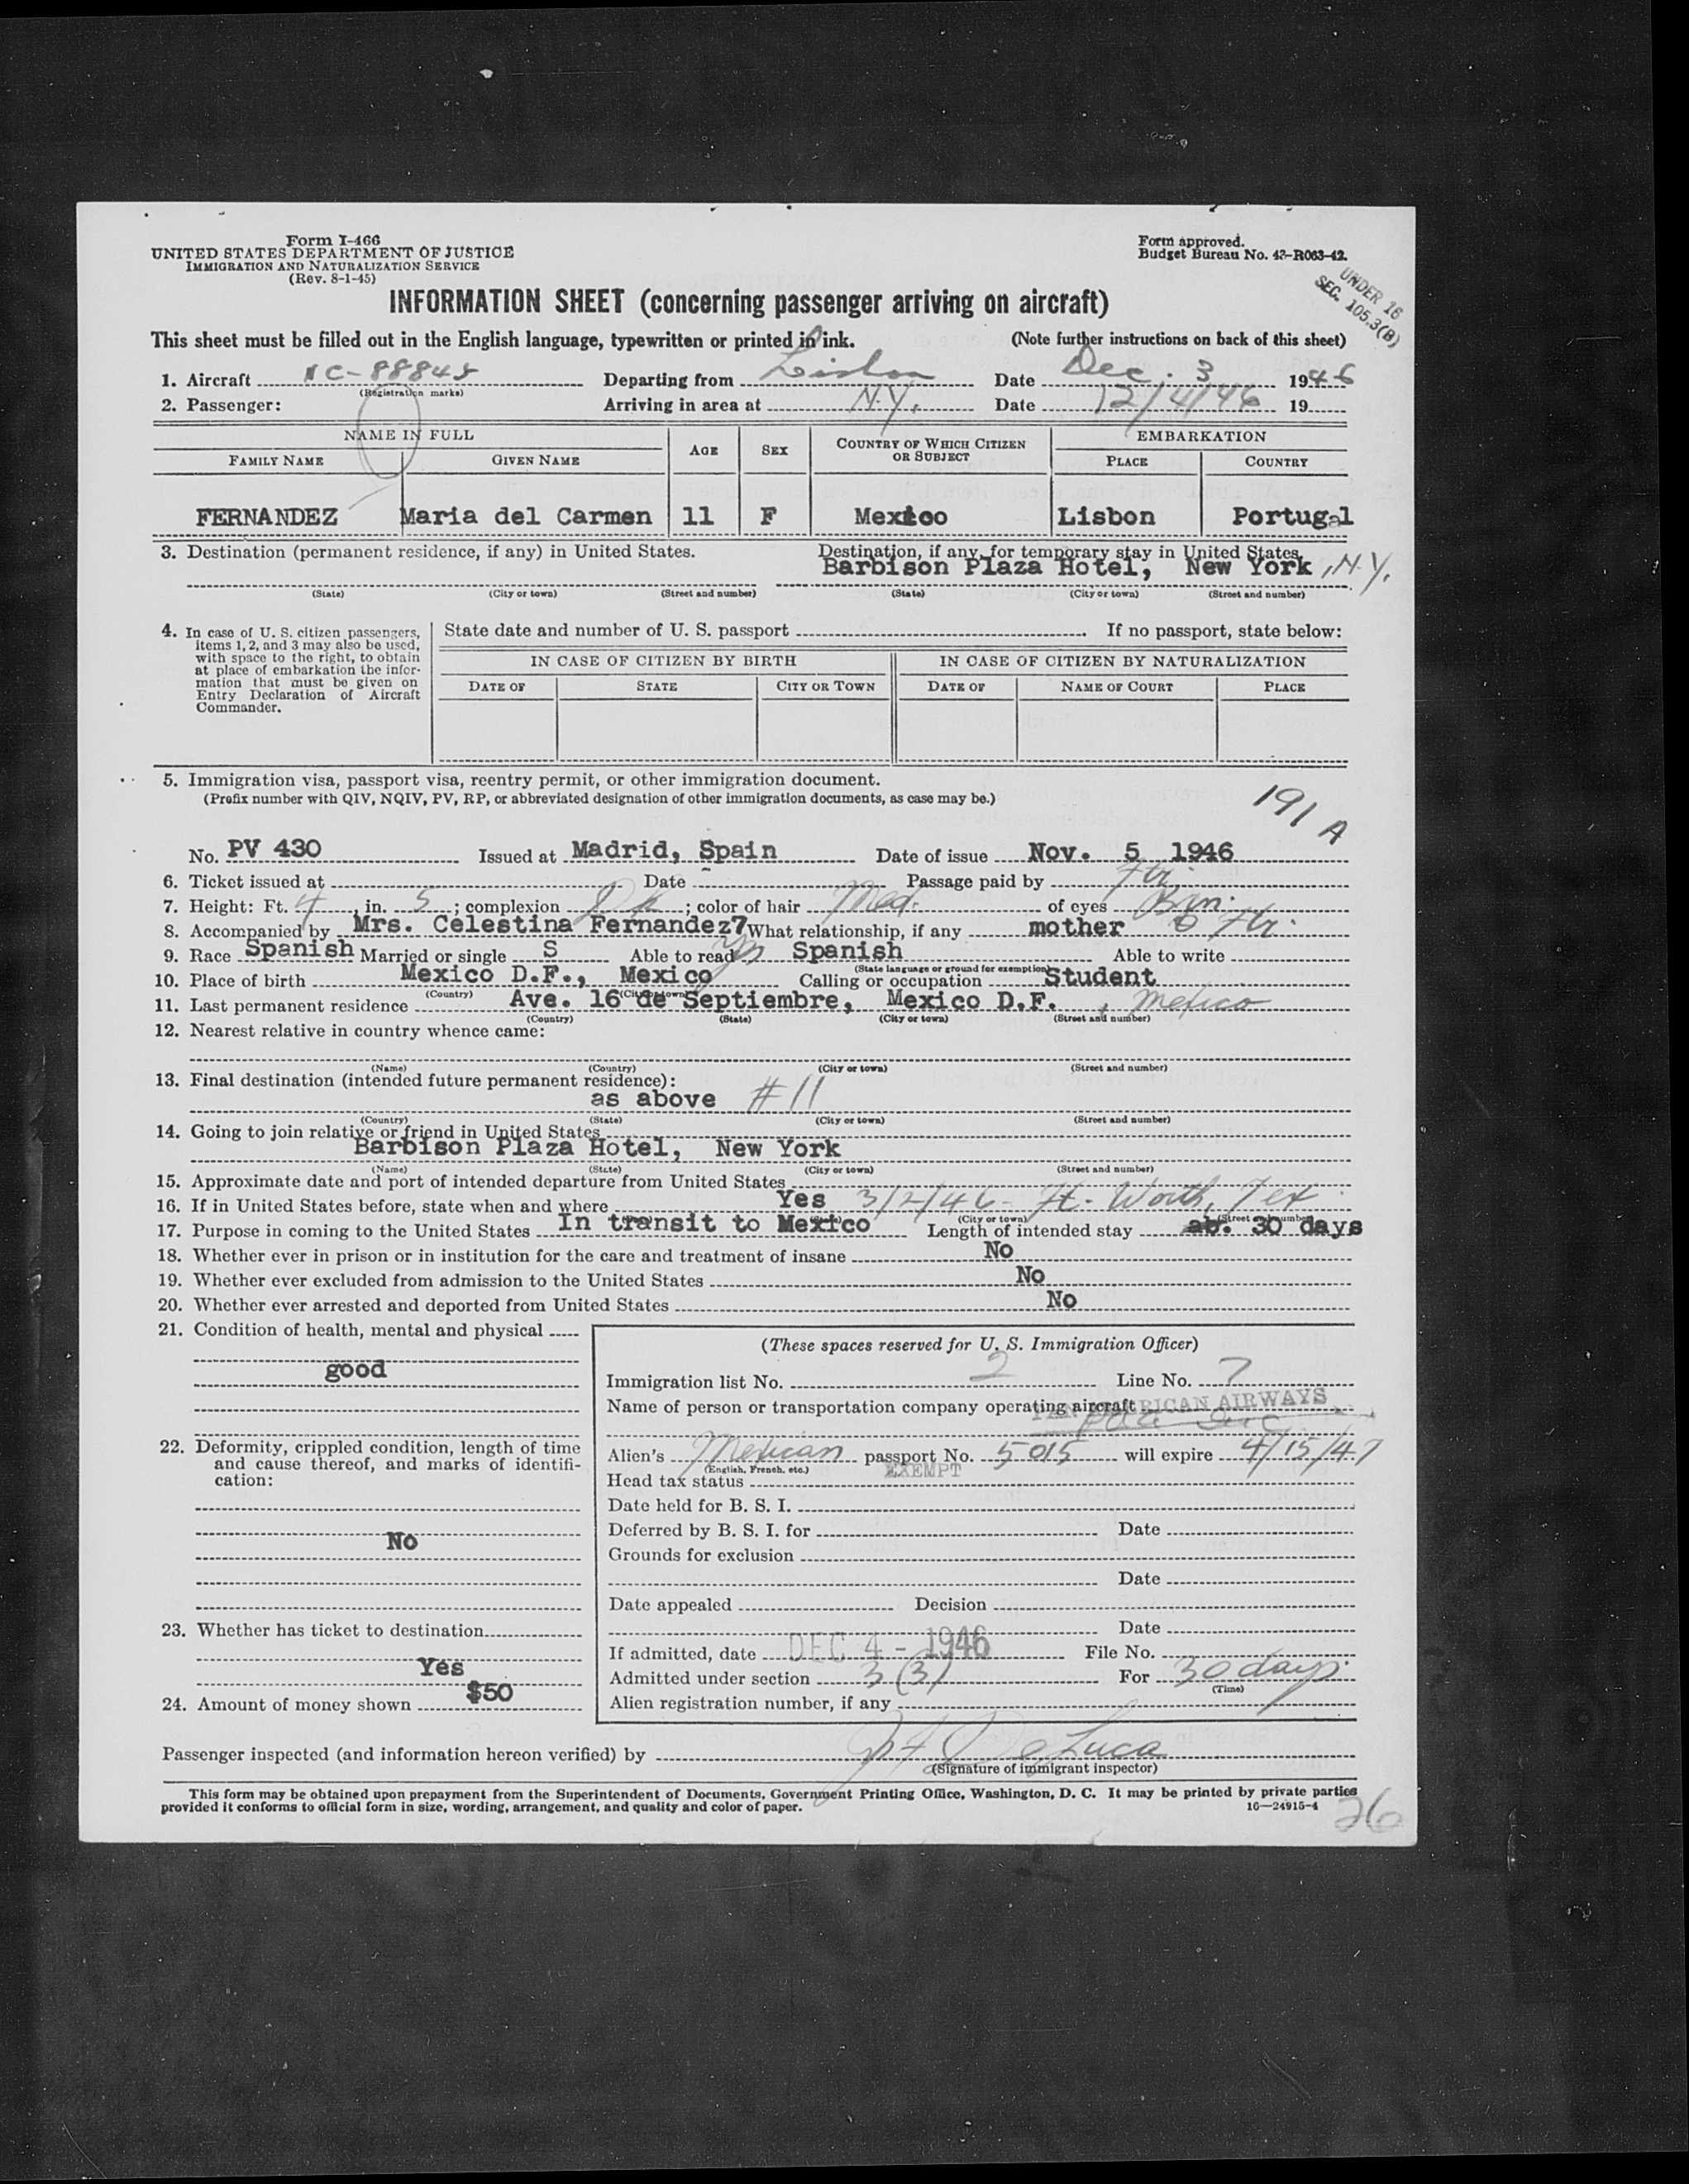 Form I-466
UNITED STATES DEPARTMENT OF JUSTICE
IMMIGRATION AND NATURALIZATION SERVICE
(Rev. 8-1-45)
Form approved.
Budget Bureau No. 43-R063-42.
UNDER 16
SEC. 105.3(B)
INFORMATION SHEET (concerning passenger arriving on aircraft)
This sheet must be filled out in the English language, typewritten or printed in ink. (Note further instructions on back of this sheet)
1. Aircraft NC-88845 Departing from Lisbon Date Dec. 3 1946
(Registration marks)
2. Passenger: Arriving in area at N.Y. Date 12/4/46 19
NAME IN FULL AGE SEX COUNTRY OF WHICH CITIZEN OR SUBJECT EMBARKATION
FAMILY NAME GIVEN NAME PLACE COUNTRY
FERNANDEZ Maria del Carmen 11 F Mexico Lisbon Portugal
3. Destination (permanent residence, if any) in United States. Destination, if any, for temporary stay in United States.
Barbison Plaza Hotel, New York, N.Y.
(State) (City or town) (Street and number) (State) (City or town) (Street and number)
4. In case of U. S. citizen passengers, items 1, 2, and 3 may also be used, with space to the right, to obtain at place of embarkation the information that must be given on Entry Declaration of Aircraft Commander.
State date and number of U. S. passport If no passport, state below:
IN CASE OF CITIZEN BY BIRTH IN CASE OF CITIZEN BY NATURALIZATION
DATE OF STATE CITY OR TOWN DATE OF NAME OF COURT PLACE
5. Immigration visa, passport visa, reentry permit, or other immigration document.
(Prefix number with QIV, NQIV, PV, RP, or abbreviated designation of other immigration documents, as case may be.)
191 A
No. PV 430 Issued at Madrid, Spain Date of issue Nov. 5 1946
6. Ticket issued at Date Passage paid by Fthr.
7. Height: Ft. 4, in. 5; complexion Dk; color of hair Med. of eyes Brn.
8. Accompanied by Mrs. Celestina Fernandez What relationship, if any mother
9. Race Spanish Married or single S Able to read yes Spanish Able to write
(State language or ground for exemption)
10. Place of birth Mexico D.F., Mexico Calling or occupation Student
(Country) (City or town)
11. Last permanent residence Ave. 16 de Septiembre, Mexico D.F., Mexico
(Country) (State) (City or town) (Street and number)
12. Nearest relative in country whence came:
(Name) (Country) (City or town) (Street and number)
13. Final destination (intended future permanent residence):
as above #11
(Country) (State) (City or town) (Street and number)
14. Going to join relative or friend in United States
Barbison Plaza Hotel, New York
(Name) (State) (City or town) (Street and number)
15. Approximate date and port of intended departure from United States
16. If in United States before, state when and where Yes 3/2/46 - Ft. Worth, Tex.
(City or town) (Street and number)
17. Purpose in coming to the United States In transit to Mexico Length of intended stay ab. 30 days
18. Whether ever in prison or in institution for the care and treatment of insane No
19. Whether ever excluded from admission to the United States No
20. Whether ever arrested and deported from United States No
21. Condition of health, mental and physical
good
22. Deformity, crippled condition, length of time and cause thereof, and marks of identification:
No
23. Whether has ticket to destination
Yes
24. Amount of money shown $50
(These spaces reserved for U. S. Immigration Officer)
Immigration list No. 2 Line No. 7
Name of person or transportation company operating aircraft PAN AMERICAN AIRWAYS
Alien's Mexican passport No. 5015 will expire 4/15/47
(English, French, etc.)
Head tax status EXEMPT
Date held for B. S. I.
Deferred by B. S. I. for Date
Grounds for exclusion
Date
Date appealed Decision
Date
If admitted, date DEC 4 - 1946 File No.
Admitted under section 3(3) For 30 days
(Time)
Alien registration number, if any
Passenger inspected (and information hereon verified) by De Luca
(Signature of immigrant inspector)
This form may be obtained upon prepayment from the Superintendent of Documents, Government Printing Office, Washington, D. C. It may be printed by private parties
provided it conforms to official form in size, wording, arrangement, and quality and color of paper. 16—24915-4
26